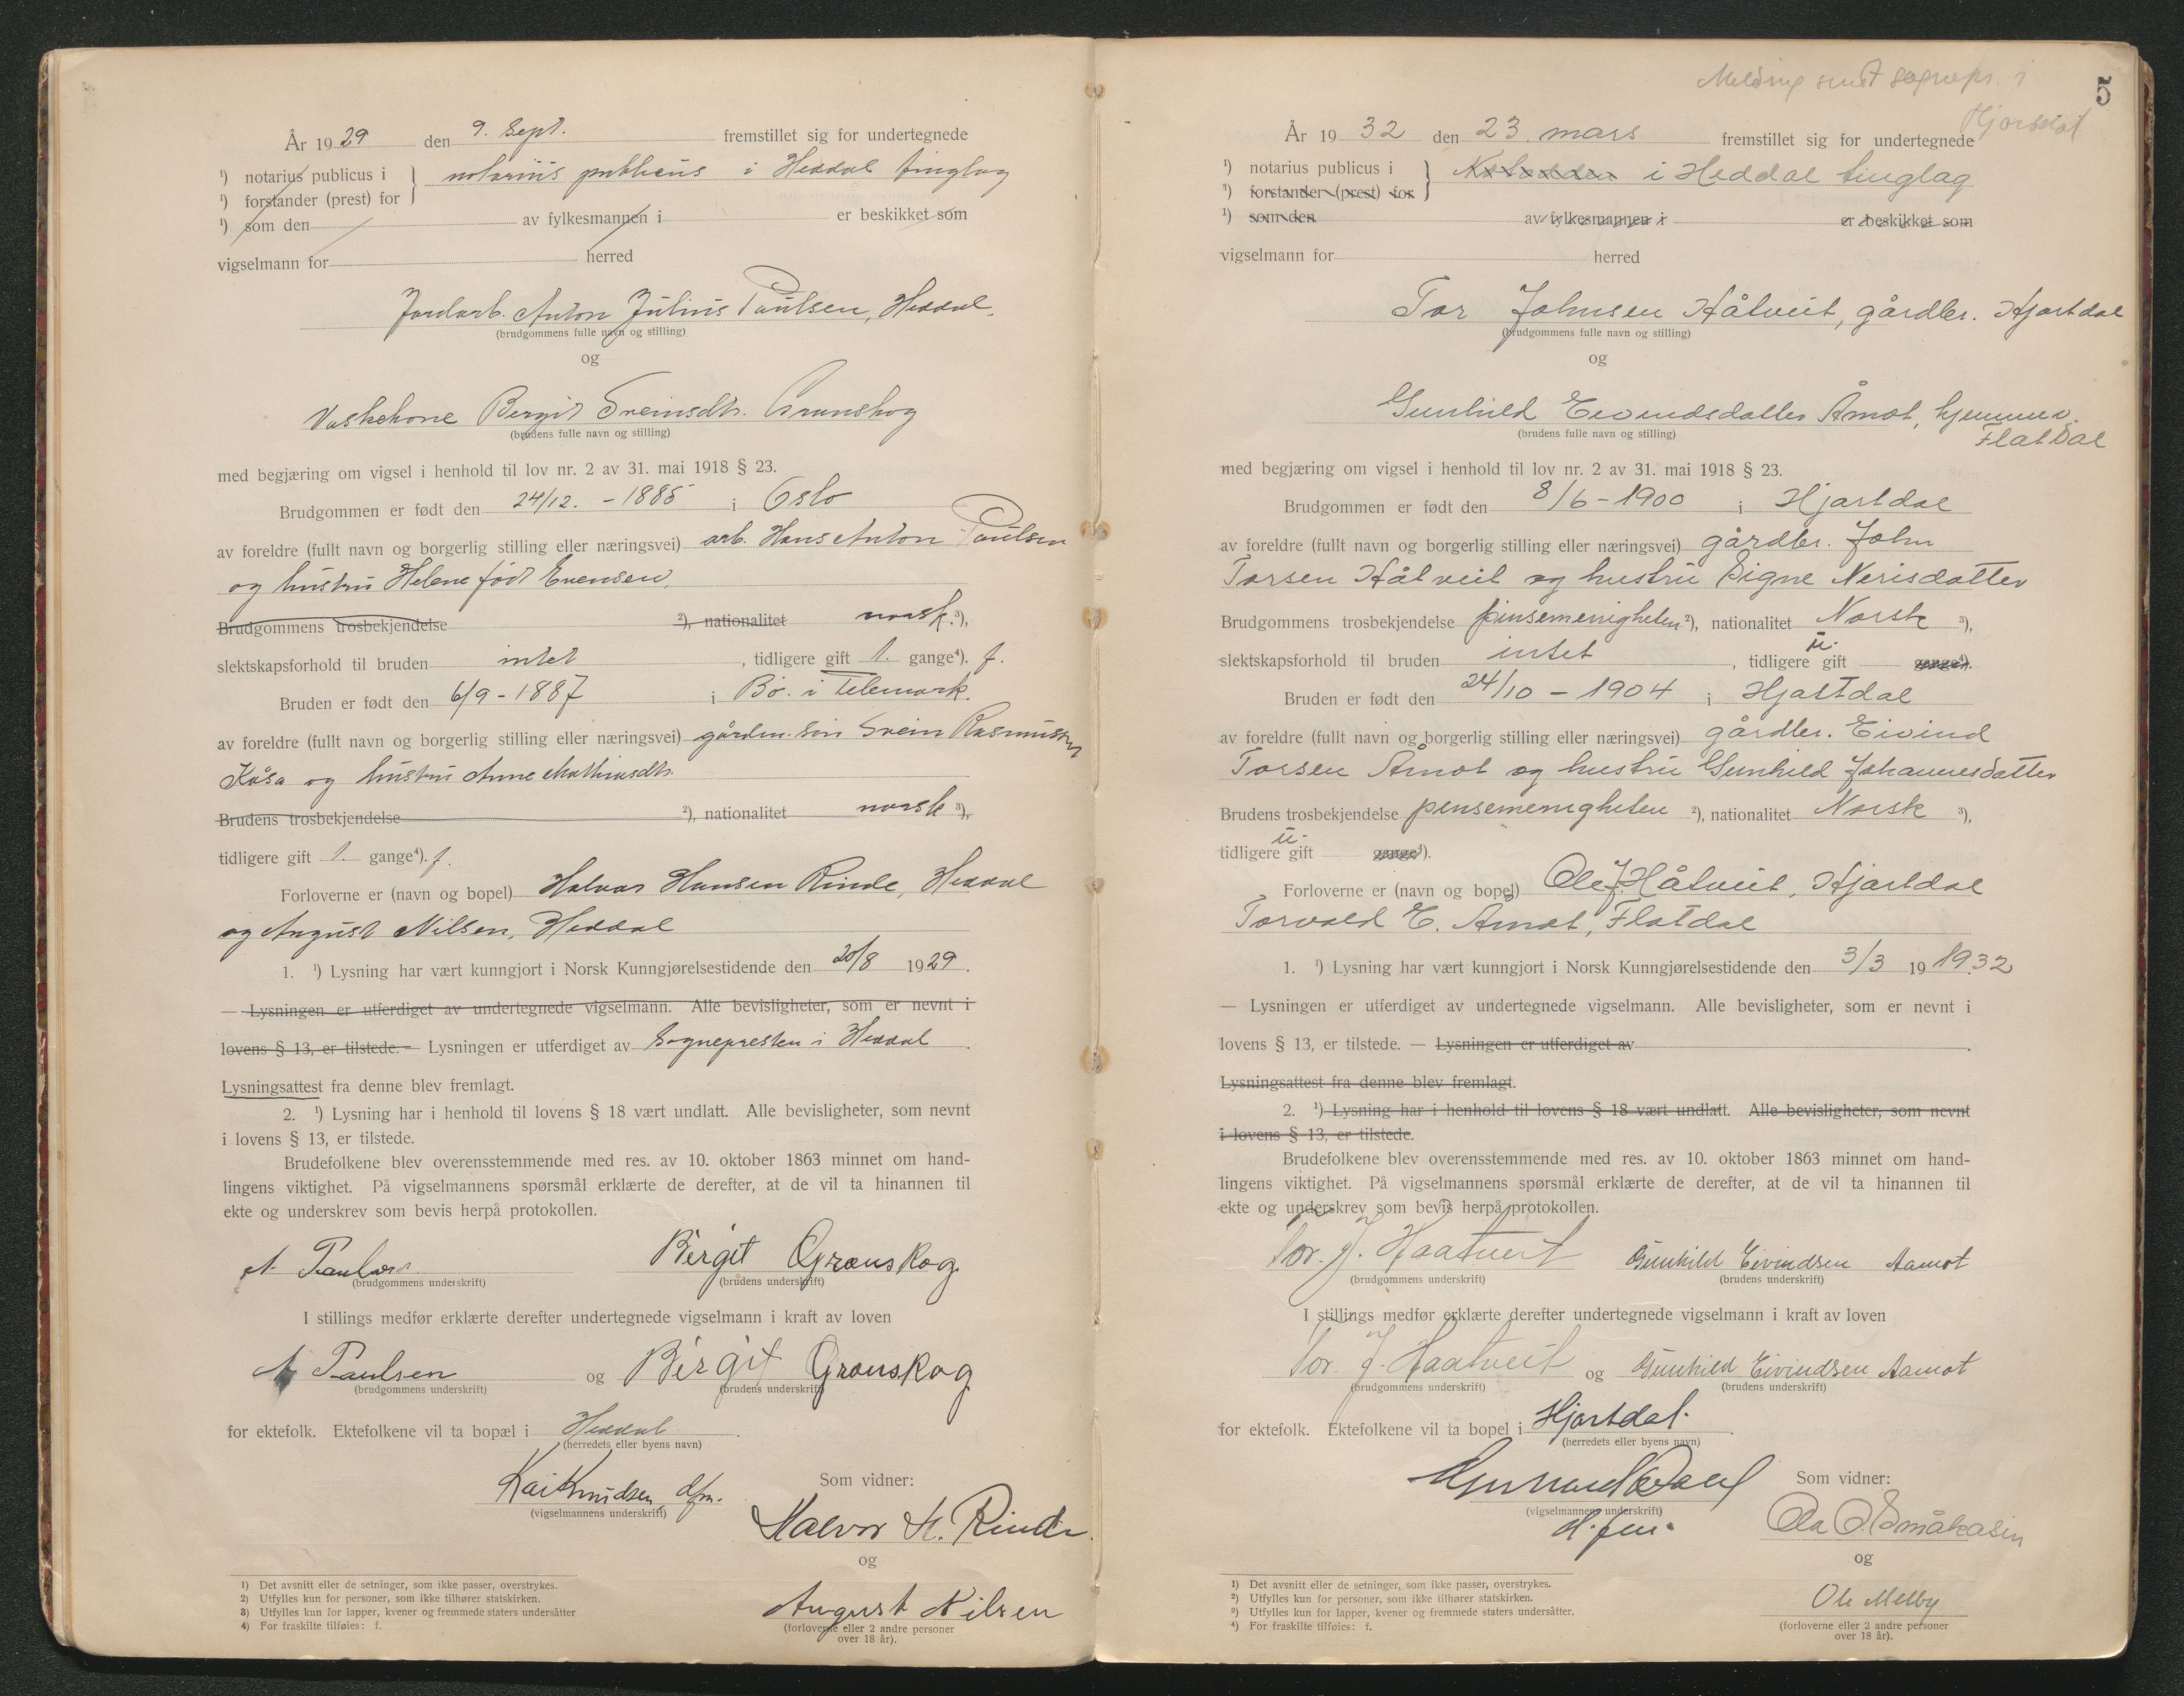 År 1929 den 9. Sept. fremstillet sig for undertegnede
¹) notarius publicus i } notarius publicus i Heddal tinglag
¹) forstander (prest) for
¹) som den av fylkesmannen i er beskikket som
vigselmann for herred
Jordarb. Anton Julius Paulsen, Heddal.
(brudgommens fulle navn og stilling)
og
Vaskekone Bergit Sveinsdtr. Grønskog
(brudens fulle navn og stilling)
med begjæring om vigsel i henhold til lov nr. 2 av 31. mai 1918 § 23.
Brudgommen er født den 24/12. - 1885 i Oslo
av foreldre (fullt navn og borgerlig stilling eller næringsvei) arb. Hans Anton Paulsen
og hustru Helene født Evensen.
Brudgommens trosbekjendelse ²), nationalitet norsk. ³),
slektskapsforhold til bruden intet, tidligere gift 1. gange⁴). f.
Bruden er født den 6/9 - 1887 i Bø i Telemark.
av foreldre (fullt navn og borgerlig stilling eller næringsvei) Svein Rasmussen
Kåsa og hustru Anne Mathiasdtr.
Brudens trosbekjendelse ²), nationalitet norsk ³),
tidligere gift 1. gange⁴). f.
Forloverne er (navn og bopel) Halvor Hansen Rinde, Heddal
og August Nilsen, Heddal
1. ¹) Lysning har vært kunngjort i Norsk Kunngjørelsestidende den 20/8 1929.
— Lysningen er utferdiget av undertegnede vigselmann. Alle bevisligheter, som er nevnt i
lovens § 13, er tilstede. — Lysningen er utferdiget av Sognepresten i Heddal.
Lysningsattest fra denne blev fremlagt.
2. ¹) Lysning har i henhold til lovens § 18 vært undlatt. Alle bevisligheter, som nevnt
i lovens § 13, er tilstede.
Brudefolkene blev overensstemmende med res. av 10. oktober 1863 minnet om hand-
lingens viktighet. På vigselmannens spørsmål erklærte de derefter, at de vil ta hinannen til
ekte og underskrev som bevis herpå protokollen.
A Paulsen Birgit Grønskog
(brudgommens underskrift) (brudens underskrift)
I stillings medfør erklærte derefter undertegnede vigselmann i kraft av loven
A Paulsen og Birgit Grønskog
(brudgommens underskrift) (brudens underskrift)
for ektefolk. Ektefolkene vil ta bopæl i Heddal.
(herredets eller byens navn)
Kai Knudsen, dfm.
(vigselmannens underskrift)
Som vidner:
Halvor H. Rinde.
og
August Nilsen
(forloverne eller 2 andre personer
over 18 år).
1) Det avsnitt eller de setninger, som ikke passer, overstrykes.
2) Utfylles kun for personer, som ikke tilhører statskirken.
3) Utfylles kun for lapper, kvener og fremmede staters undersåtter
4) For fraskilte tilføies: f.
Melding sendt sognepr. i
Hjartdal
5
År 1932 den 23. mars fremstillet sig for undertegnede
¹) notarius publicus i } i Heddal tinglag
¹) forstander (prest) for
¹) som den av fylkesmannen i er beskikket som
vigselmann for herred
Tor Johnsen Håtveit, gårdbr. Hjartdal
(brudgommens fulle navn og stilling)
og
Gunhild Eivindsdatter Åmot, hjemmev.
Flatdal
(brudens fulle navn og stilling)
med begjæring om vigsel i henhold til lov nr. 2 av 31. mai 1918 § 23.
Brudgommen er født den 8/6 - 1900 i Hjartdal
av foreldre (fullt navn og borgerlig stilling eller næringsvei) gårdbr. John
Torsen Håtveit og hustru Signe Nerisdatter
Brudgommens trosbekjendelse pinsemenigheten ²), nationalitet Norsk ³),
slektskapsforhold til bruden intet, tidligere u. gift gange⁴).
Bruden er født den 24/10 - 1904 i Hjartdal
av foreldre (fullt navn og borgerlig stilling eller næringsvei) gårdbr. Eivind
Torsen Åmot og hustru Gunhild Johannesdatter
Brudens trosbekjendelse pinsemenigheten ²), nationalitet Norsk ³),
tidligere u. gift gange⁴).
Forloverne er (navn og bopel) Ole J. Håtveit, Hjartdal
Torvald E. Åmot, Flatdal
1. ¹) Lysning har vært kunngjort i Norsk Kunngjørelsestidende den 3/3 19 1932
— Lysningen er utferdiget av undertegnede vigselmann. Alle bevisligheter, som er nevnt i
lovens § 13, er tilstede. — Lysningen er utferdiget av.
Lysningsattest fra denne blev fremlagt.
2. ¹) Lysning har i henhold til lovens § 18 vært undlatt. Alle bevisligheter, som nevnt
i lovens § 13, er tilstede.
Brudefolkene blev overensstemmende med res. av 10. oktober 1863 minnet om hand-
lingens viktighet. På vigselmannens spørsmål erklærte de derefter, at de vil ta hinannen til
ekte og underskrev som bevis herpå protokollen.
Tor. J. Haatveit Gunhild Eivindsen Aamot
(brudgommens underskrift) (brudens underskrift)
I stillings medfør erklærte derefter undertegnede vigselmann i kraft av loven
Tor. J. Haatveit og Gunhild Eivindsen Aamot
(brudgommens underskrift) (brudens underskrift)
for ektefolk. Ektefolkene vil ta bopel i Hjartdal.
(herredets eller byens navn)
(vigselmannens underskrift)
Som vidner:
Ola O. Småkasin
og
Ole Melby
(forloverne eller 2 andre personer
over 18 år).
¹) Det avsnitt eller de setninger, som ikke passer, overstrykes.
²) Utfylles kun for personer, som ikke tilhører statskirken.
³) Utfylles kun for lapper, kvener og fremmede staters undersåtter.
⁴) For fraskilte tilføies: f.